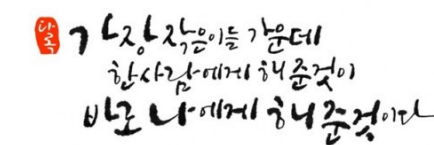 가장 작은이들 가운데
한사람에게 해 준것이
바로 나에게 해 준것이다